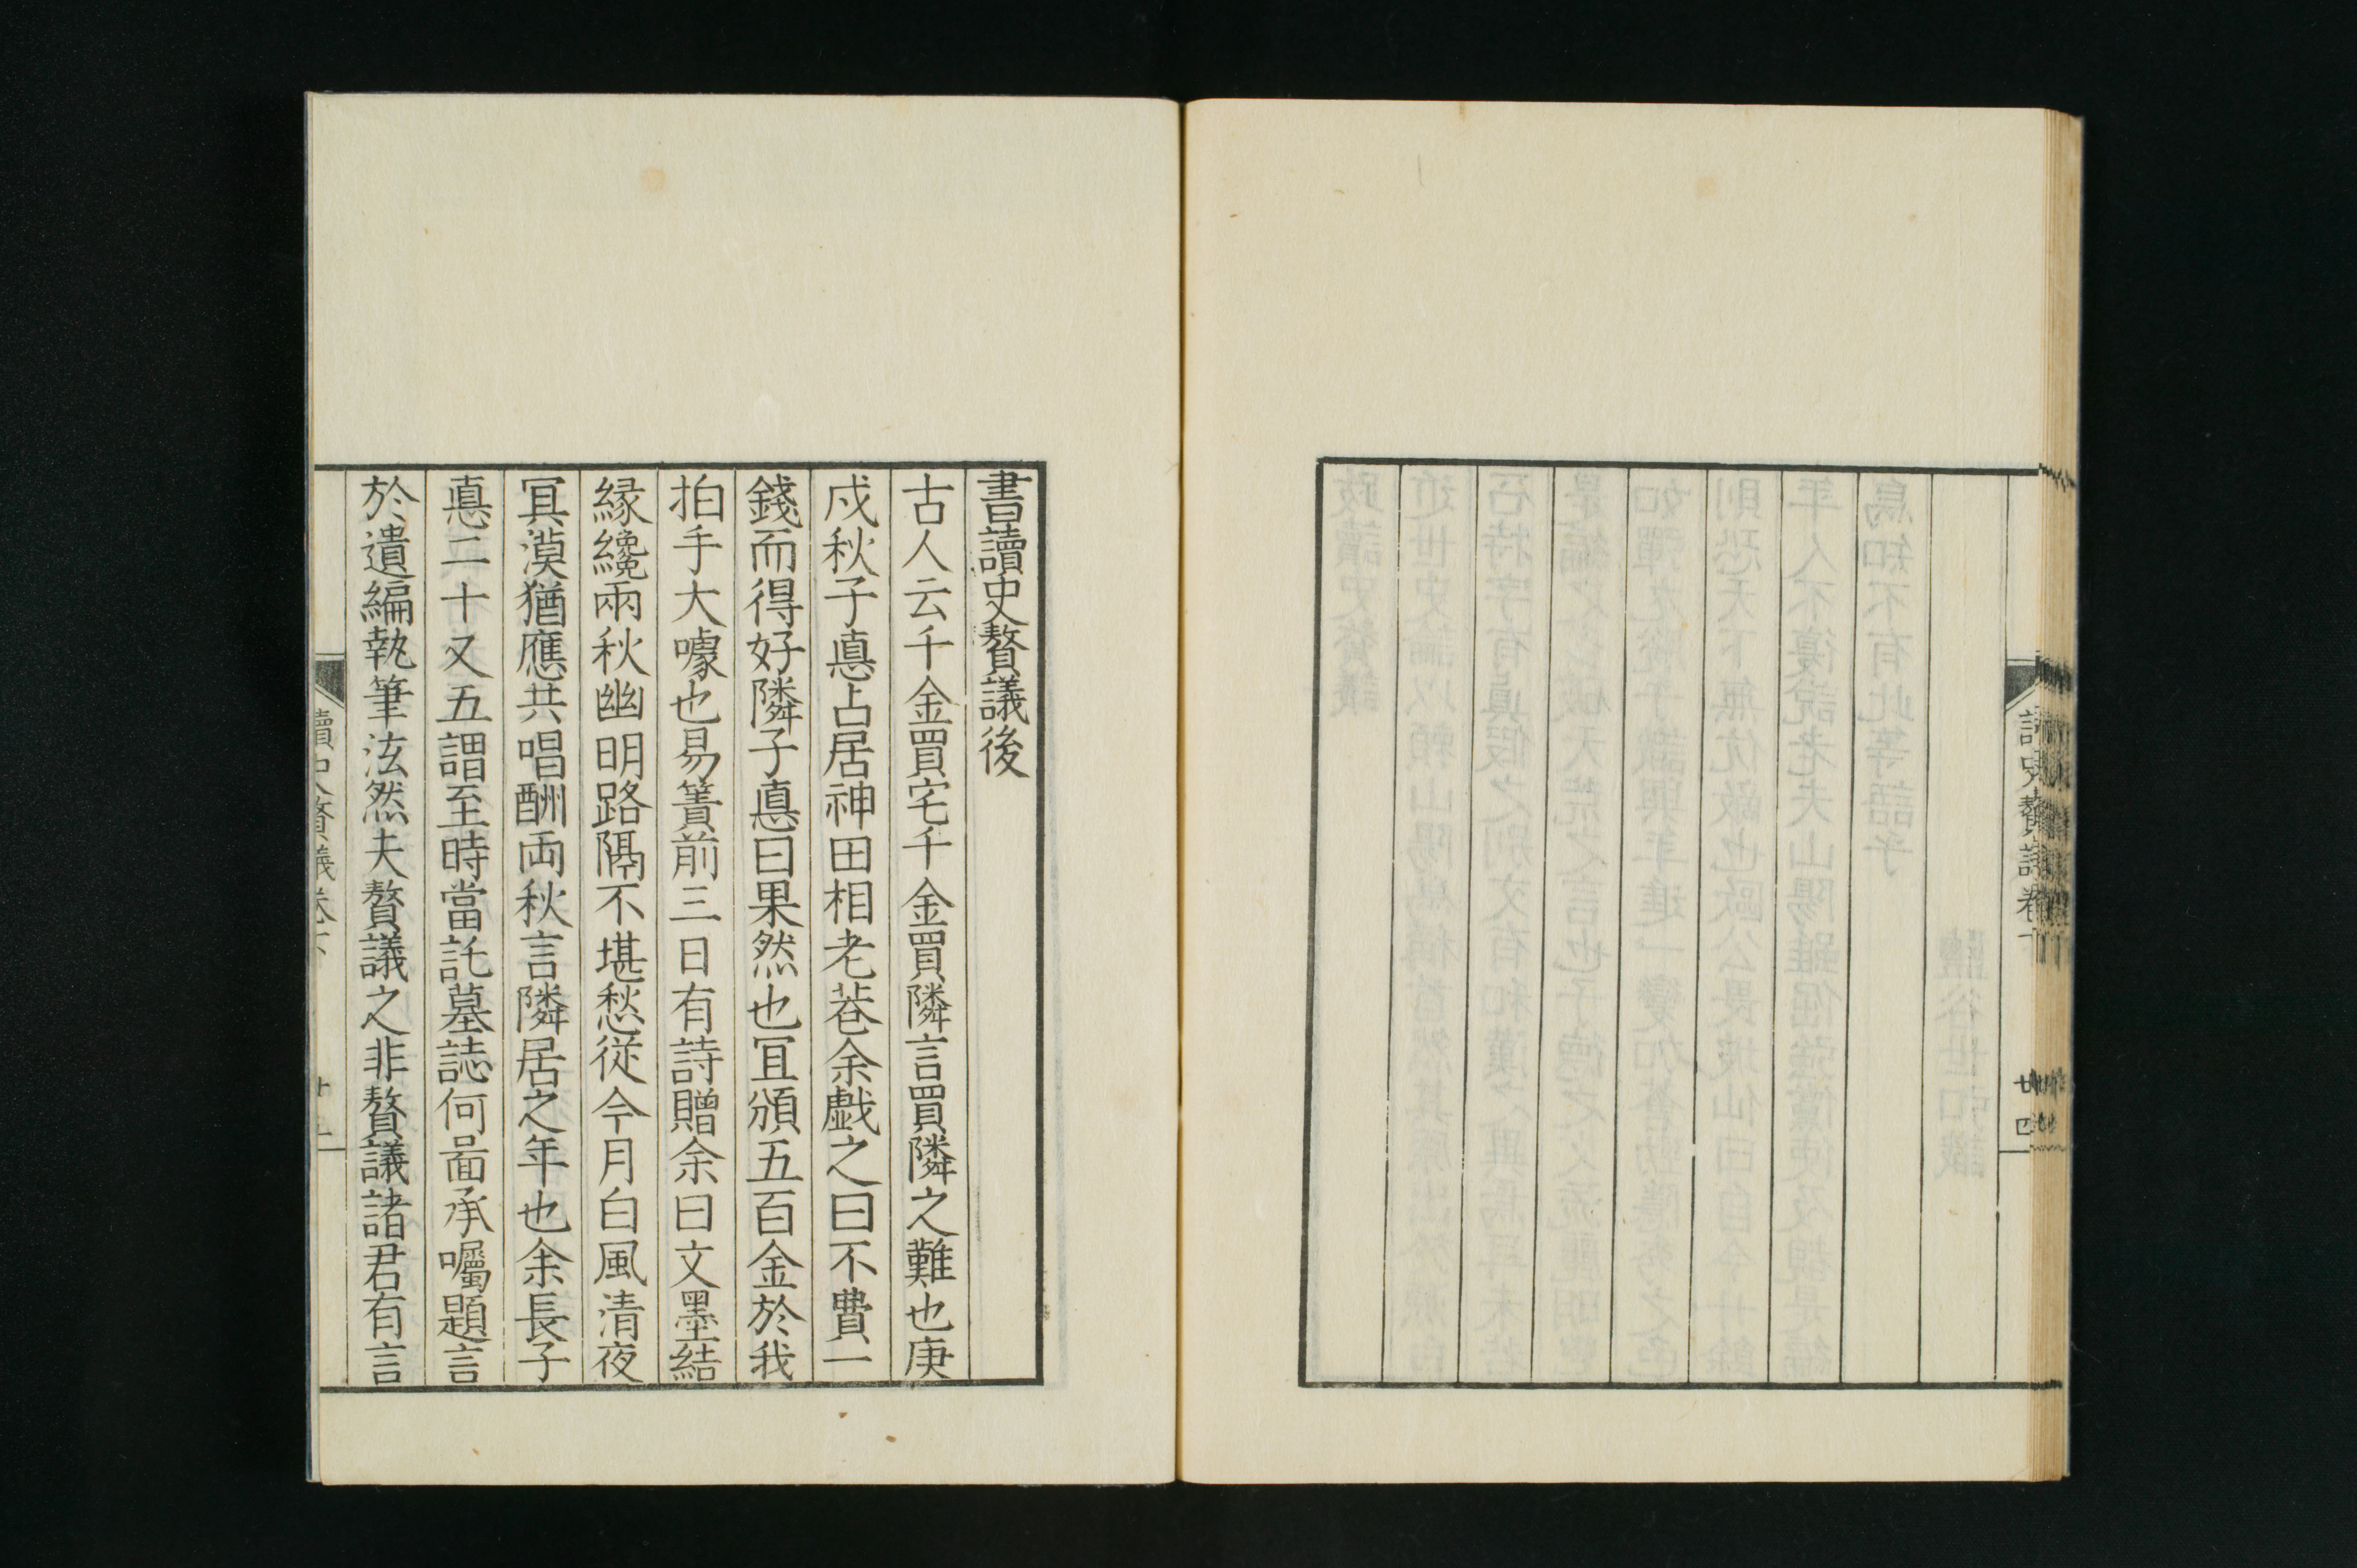 讀史贅議卷下
廿四
書讀史贅議後
古人云千金買宅千金買隣言買隣之難也庚
戌秋子悳占居神田相老巷余戱之曰不費一
錢而得好隣子悳曰果然也冝頒五百金於我
拍手大噱也易簀前三日有詩贈余曰文墨結
縁纔兩秋幽明路隔不堪愁從今月白風清夜
冥漠猶應共唱酬両秋言隣居之年也余長子
悳二十又五謂至時當託墓誌何啚承囑題言
於遺編執筆泫然夫贅議之非贅議諸君有言
讀史贅議卷下